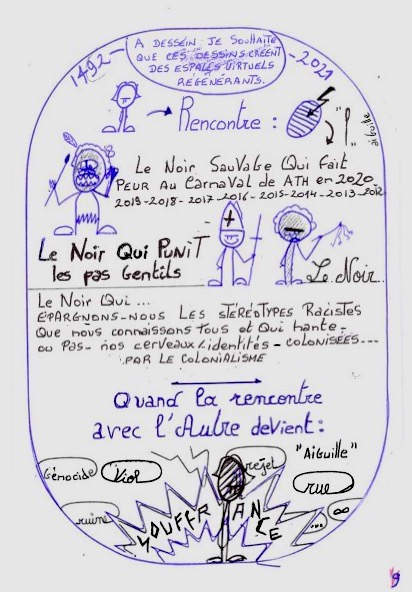 1492-
A DESSEIN JE SOUHAITE
QUE CES DESSINS CRÉENT
DES ESPACES VIRTUELS
RÉGÉNÉRANTS.
-2021
Rencontre :
"
aiguille
Le Noir Sauvage Qui fait
PEUR AU CARNAVAL de ATH en 2020
2019-2018-2017-2016-2015-2014-2013-2012
Le Noir Qui PUNIT
les pas Gentils
Le Noir...
Le Noir Qui ...
EPARGNONS-NOUS LES STÉRÉOTYPES RACISTES
QUE NOUS CONNAISSONS TOUS et QUI hante-
ou PAS- nos cerveaux/identités - colonisées---
PAR LE COLONIALISME
Quand la rencontre
avec l'Autre devient:
Génocide
Viol
rejet
"Aiguille"
rue
ruine
SOUFFRANCE
...
∞
9